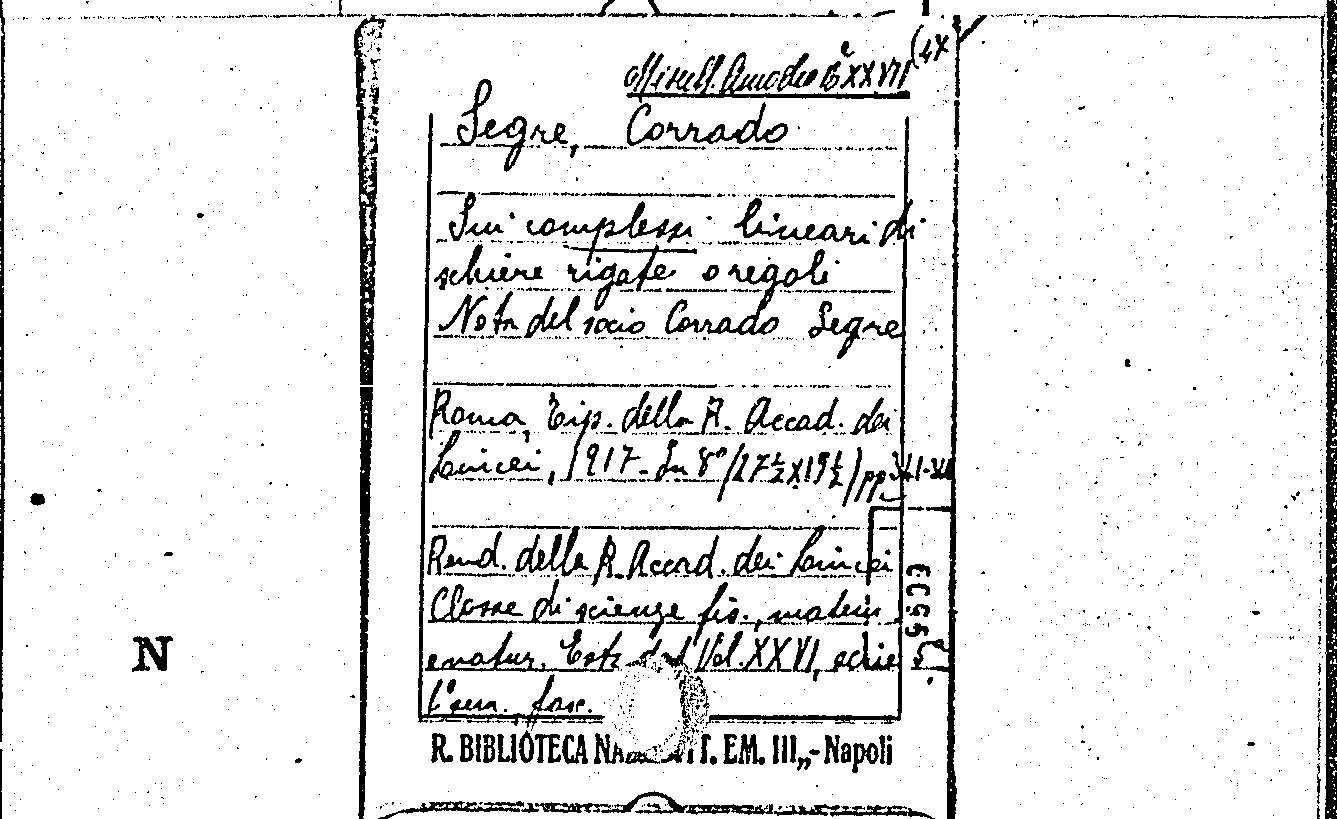 Misell. Amodeo B XXVII (4X
Segre, Corrado
Sui complessi lineari di
schiere rigate o regoli
Nota del socio Corrado Segre
Roma, Tip. della R. Accad. dei
Lincei, 1917. In 8° (27½ X 19½) pp.
Rend. della R. Accad. dei Lincei
Classe di scienze fis., matem.
e natur. Estr. dal Vol. XXVI, serie
1° sem., fasc.
N
R. BIBLIOTECA NA T. EM. III„- Napoli